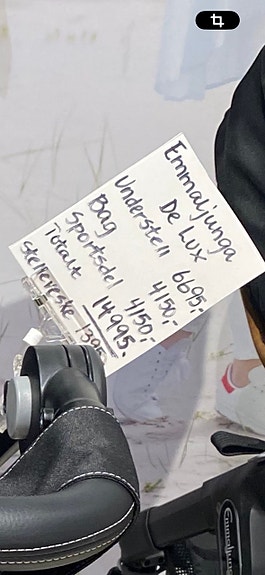 Emmaljunga
De Lux
Understell 6695,-
Bag 4150,-
Sportsdel 4150,-
Totalt 14995,-
Stelleveske 1395
Emmaljunga